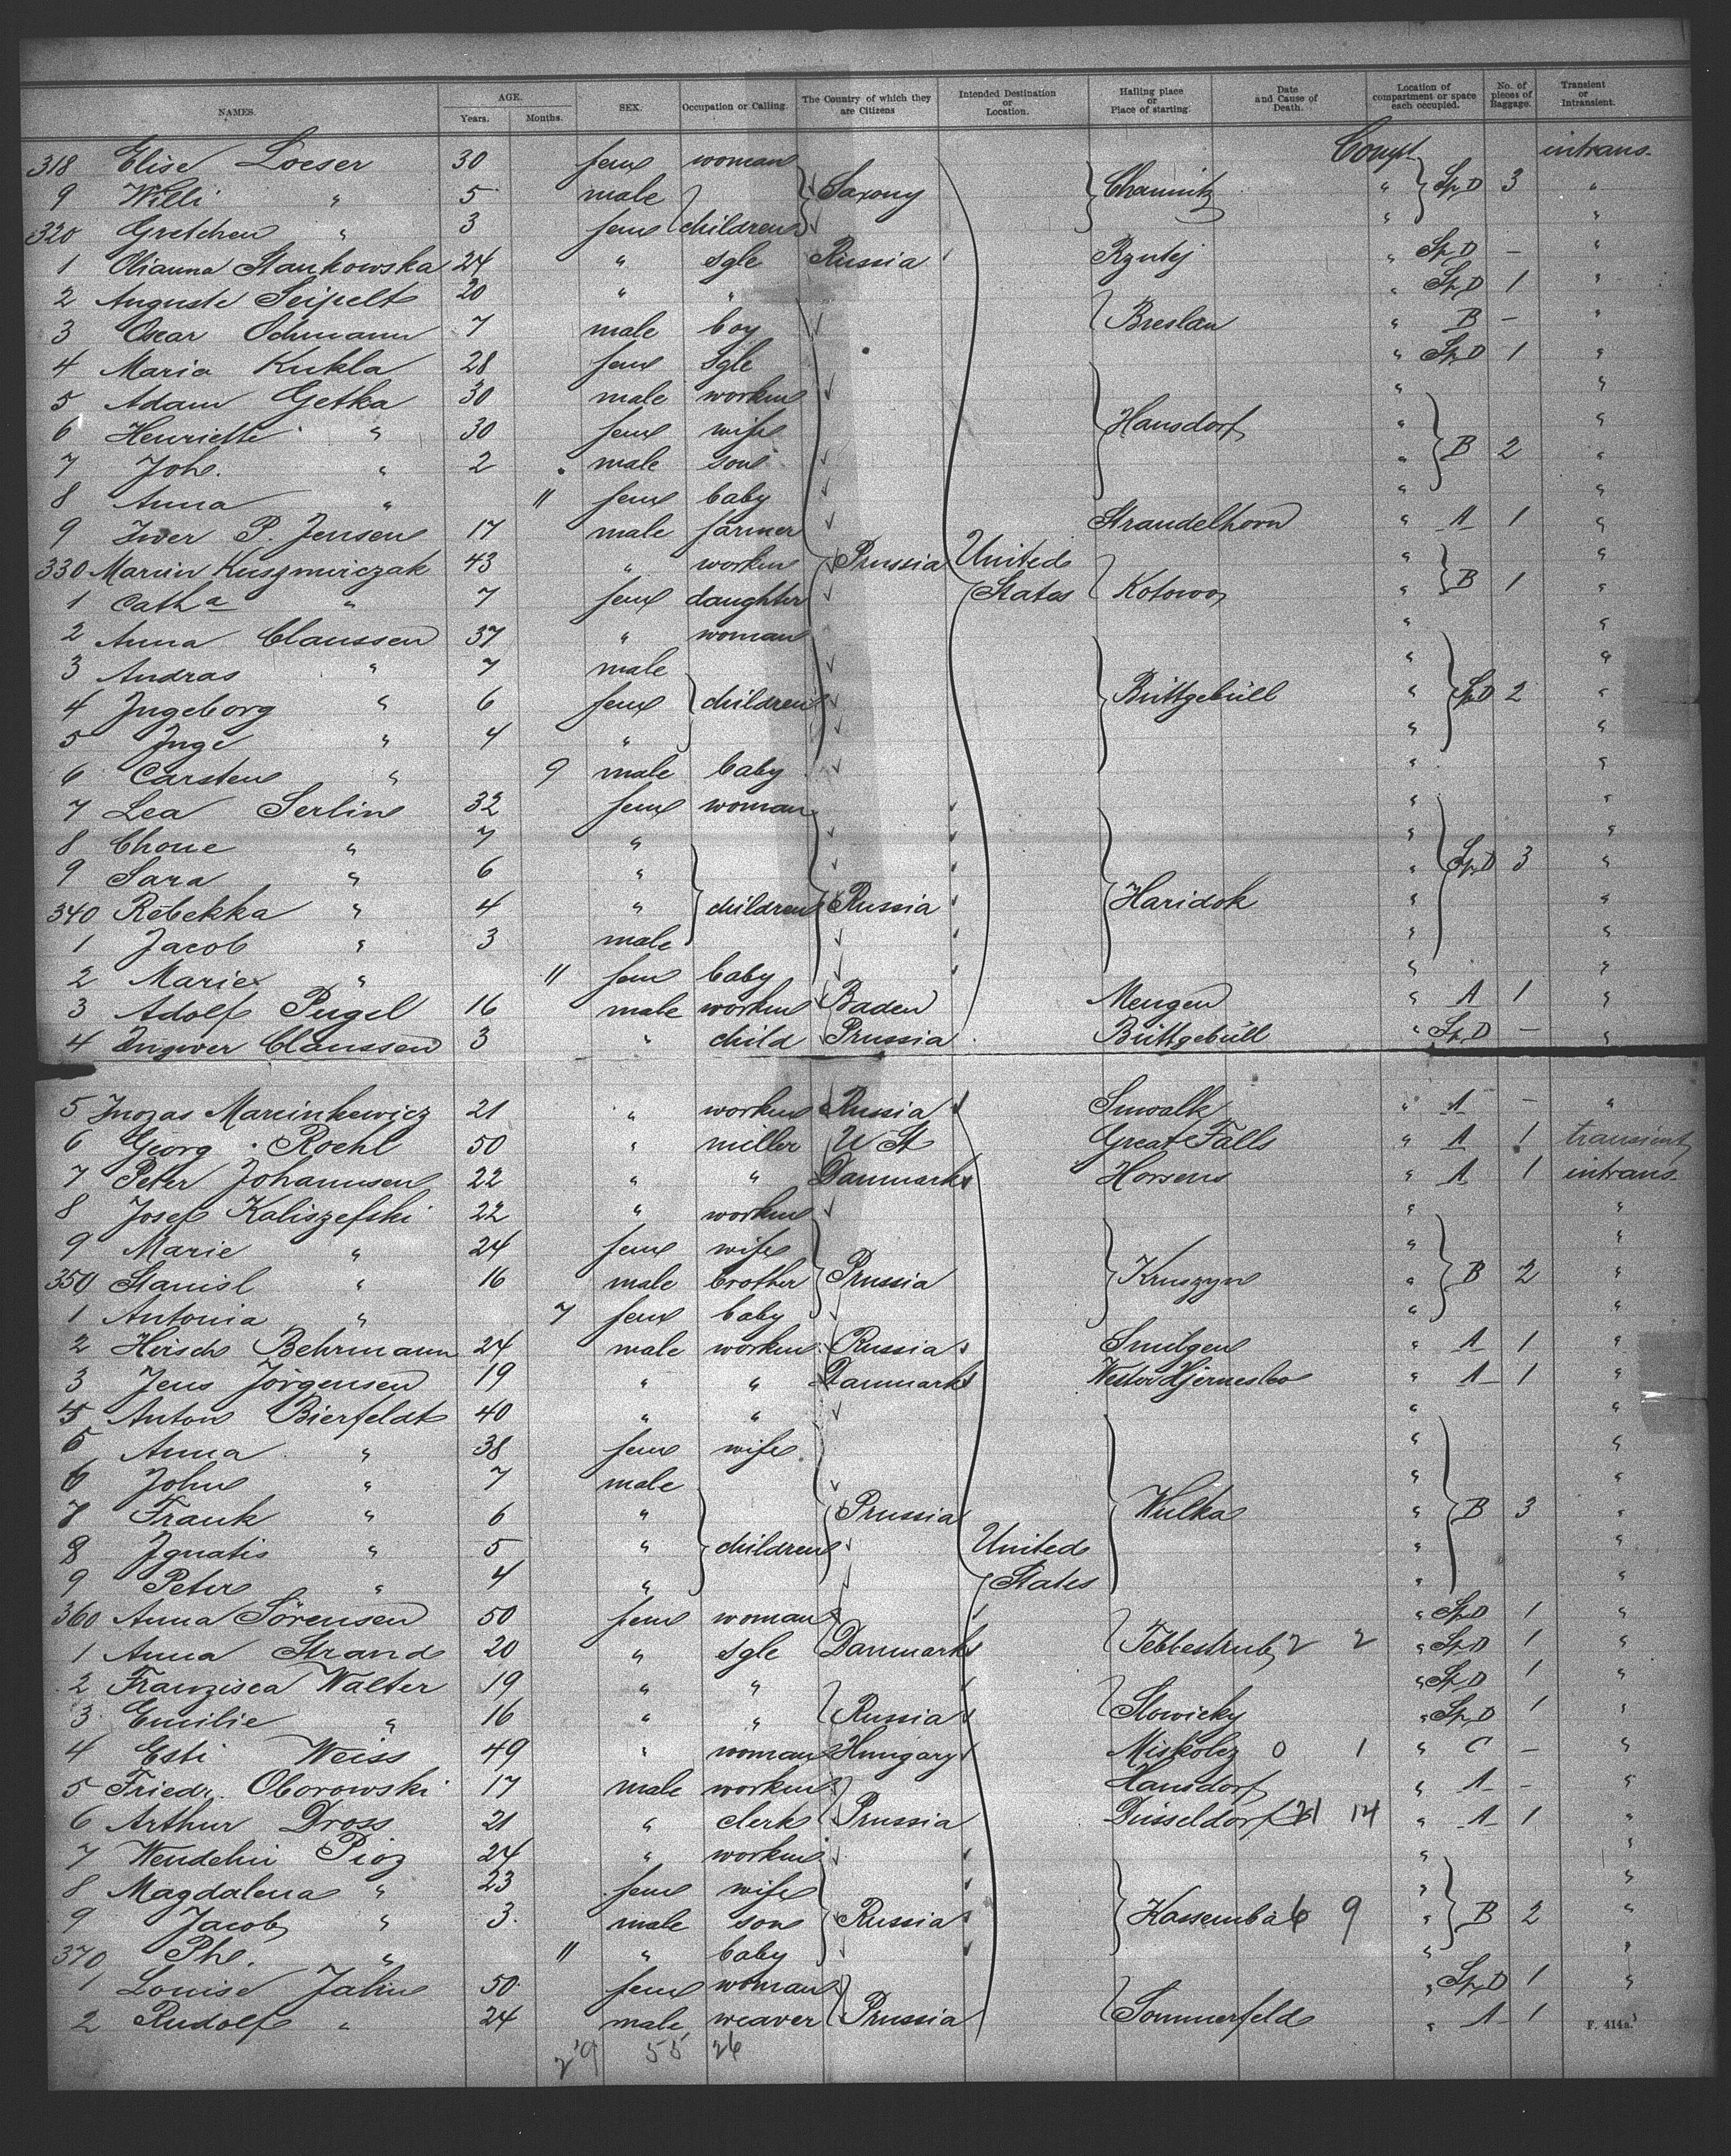 NAMES. AGE. Years. Months. SEX. Occupation or Calling. The Country of which they are Citizens Intended Destination or Location. Hailing place or Place of starting. Date and Cause of Death. Location of compartment or space each occupied. No. of pieces of Baggage. Transient or Intransient.
318 Elise Loeser 30 fem woman Compt intrans.
9 Willi " 5 male Saxony Chemnitz " Sp D 3 "
320 Gretchen " 3 fem children " "
1 Olianna Stankowska 24 " sgle Russia " Sp D – "
2 Auguste Seipelt 20 " " " Sp D 1 "
3 Oscar Ochmann 7 male boy Breslau " B – "
4 Maria Kukla 28 fem sgle " Sp D 1 "
5 Adam Getka 30 male workm " "
6 Henriette " 30 fem wife Hansdorf " "
7 Joh. " 2 male son " B 2 "
8 Anna " 11 fem baby " "
9 Iwer P. Jensen 17 male farmer Strandelhorn " A 1 "
330 Marcin Kuszmirczak 43 " workm Prussia United " "
1 Cath a " 7 fem daughter States Kotowo " B 1 "
2 Anna Claussen 37 " woman " "
3 Andras " 7 male " "
4 Ingeborg " 6 fem children Büttgebüll " Sp D 2 "
5 Inge " 4 " " "
6 Carsten " 9 male baby " "
7 Lea Serlin 32 fem woman " "
8 Choue " 7 " " "
9 Sara " 6 " " Sp D 3 "
340 Rebekka " 4 " children Russia Haridok " "
1 Jacob " 3 male " "
2 Marie " 11 fem baby " "
3 Adolf Pugel 16 male workm Baden Mengen " A 1 "
4 Ingwer Claussen 3 " child Prussia Büttgebüll " Sp D – "
5 Inozas Marcinkewicz 21 " workm Russia Suwalk " A – "
6 Georg Roehl 50 " miller U St Great Falls " A 1 transient
7 Peter Johannsen 22 " " Danmark Horsens " A 1 intrans.
8 Josef Kaliszefski 22 " workm " "
9 Marie " 24 fem wife " "
350 Stanisl " 16 male brother Prussia Kruszyn " B 2 "
1 Antonia " 7 fem baby " "
2 Hirsch Behrmann 24 male workm Russia Smilgen " A 1 "
3 Jens Jörgensen 19 " " Danmark Wester Hjermeslev " A 1 "
4 Anton Bierfeldt 40 " " " "
5 Anna " 38 fem wife " "
6 John " 7 male " "
7 Frank " 6 " Prussia Wulka " B 3 "
8 Ignatis " 5 " children United " "
9 Peter " 4 " States " "
360 Anna Sörensen 50 fem woman " Sp D 1 "
1 Anna Strand 20 " sgle Danmark Tebbestrub 2 2 " Sp D 1 "
2 Franzisca Walter 19 " " " Sp D 1 "
3 Emilie " 16 " " Russia Slowicky " Sp D 1 "
4 Esti Weiss 49 " woman Hungary Miskolcz 0 1 " C – "
5 Friedr. Oborowski 17 male workm Hansdorf " A – "
6 Arthur Dross 21 " clerk Prussia Düsseldorf 21 14 " A 1 "
7 Wendelin Pioz 24 " workm " "
8 Magdalena " 23 fem wife " "
9 Jacob " 3 male son Russia Kassemba 6 9 " B 2 "
370 Phe. " 11 " baby " "
1 Louise Jahn 50 fem woman " Sp D 1 "
2 Rudolf " 24 male weaver Prussia Sommerfeld " A 1
F. 414a.
29 55 26